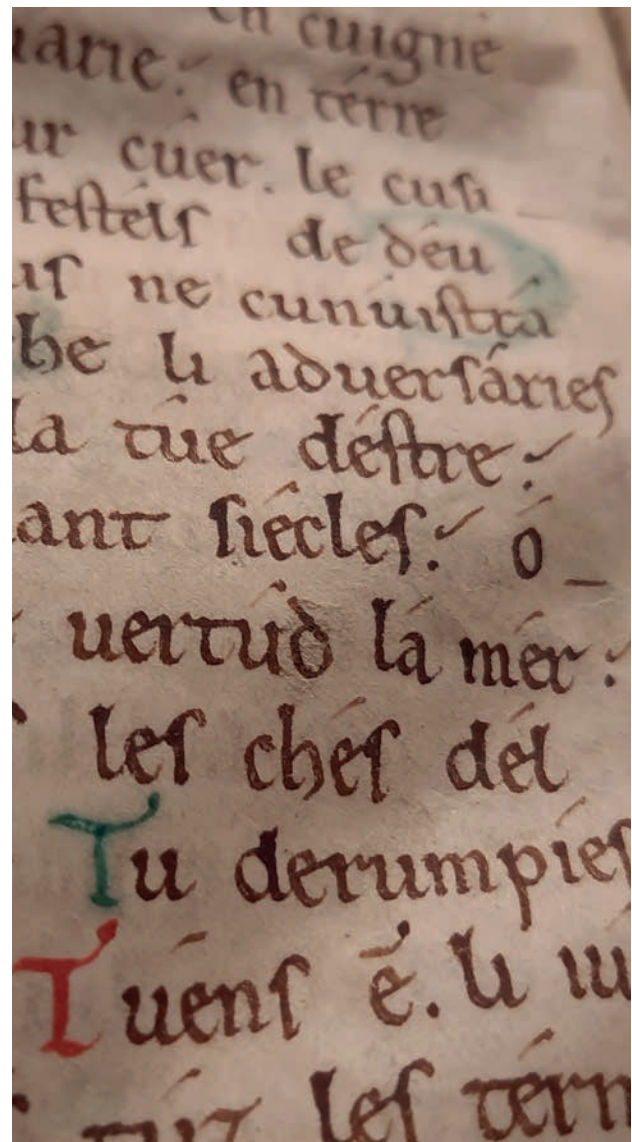 en cuigne
arie: en térre
ur cúer. le cuſi
feſtéls de déu
uſ ne cunuiſtrá
he li aduerſáries
la túe déſtre:
ant ſiécleſ: ó
uertúd lá mér:
leſ chéſ dél
Tu derumpíeſ
Tuénſ é. li iu
túz leſ térm